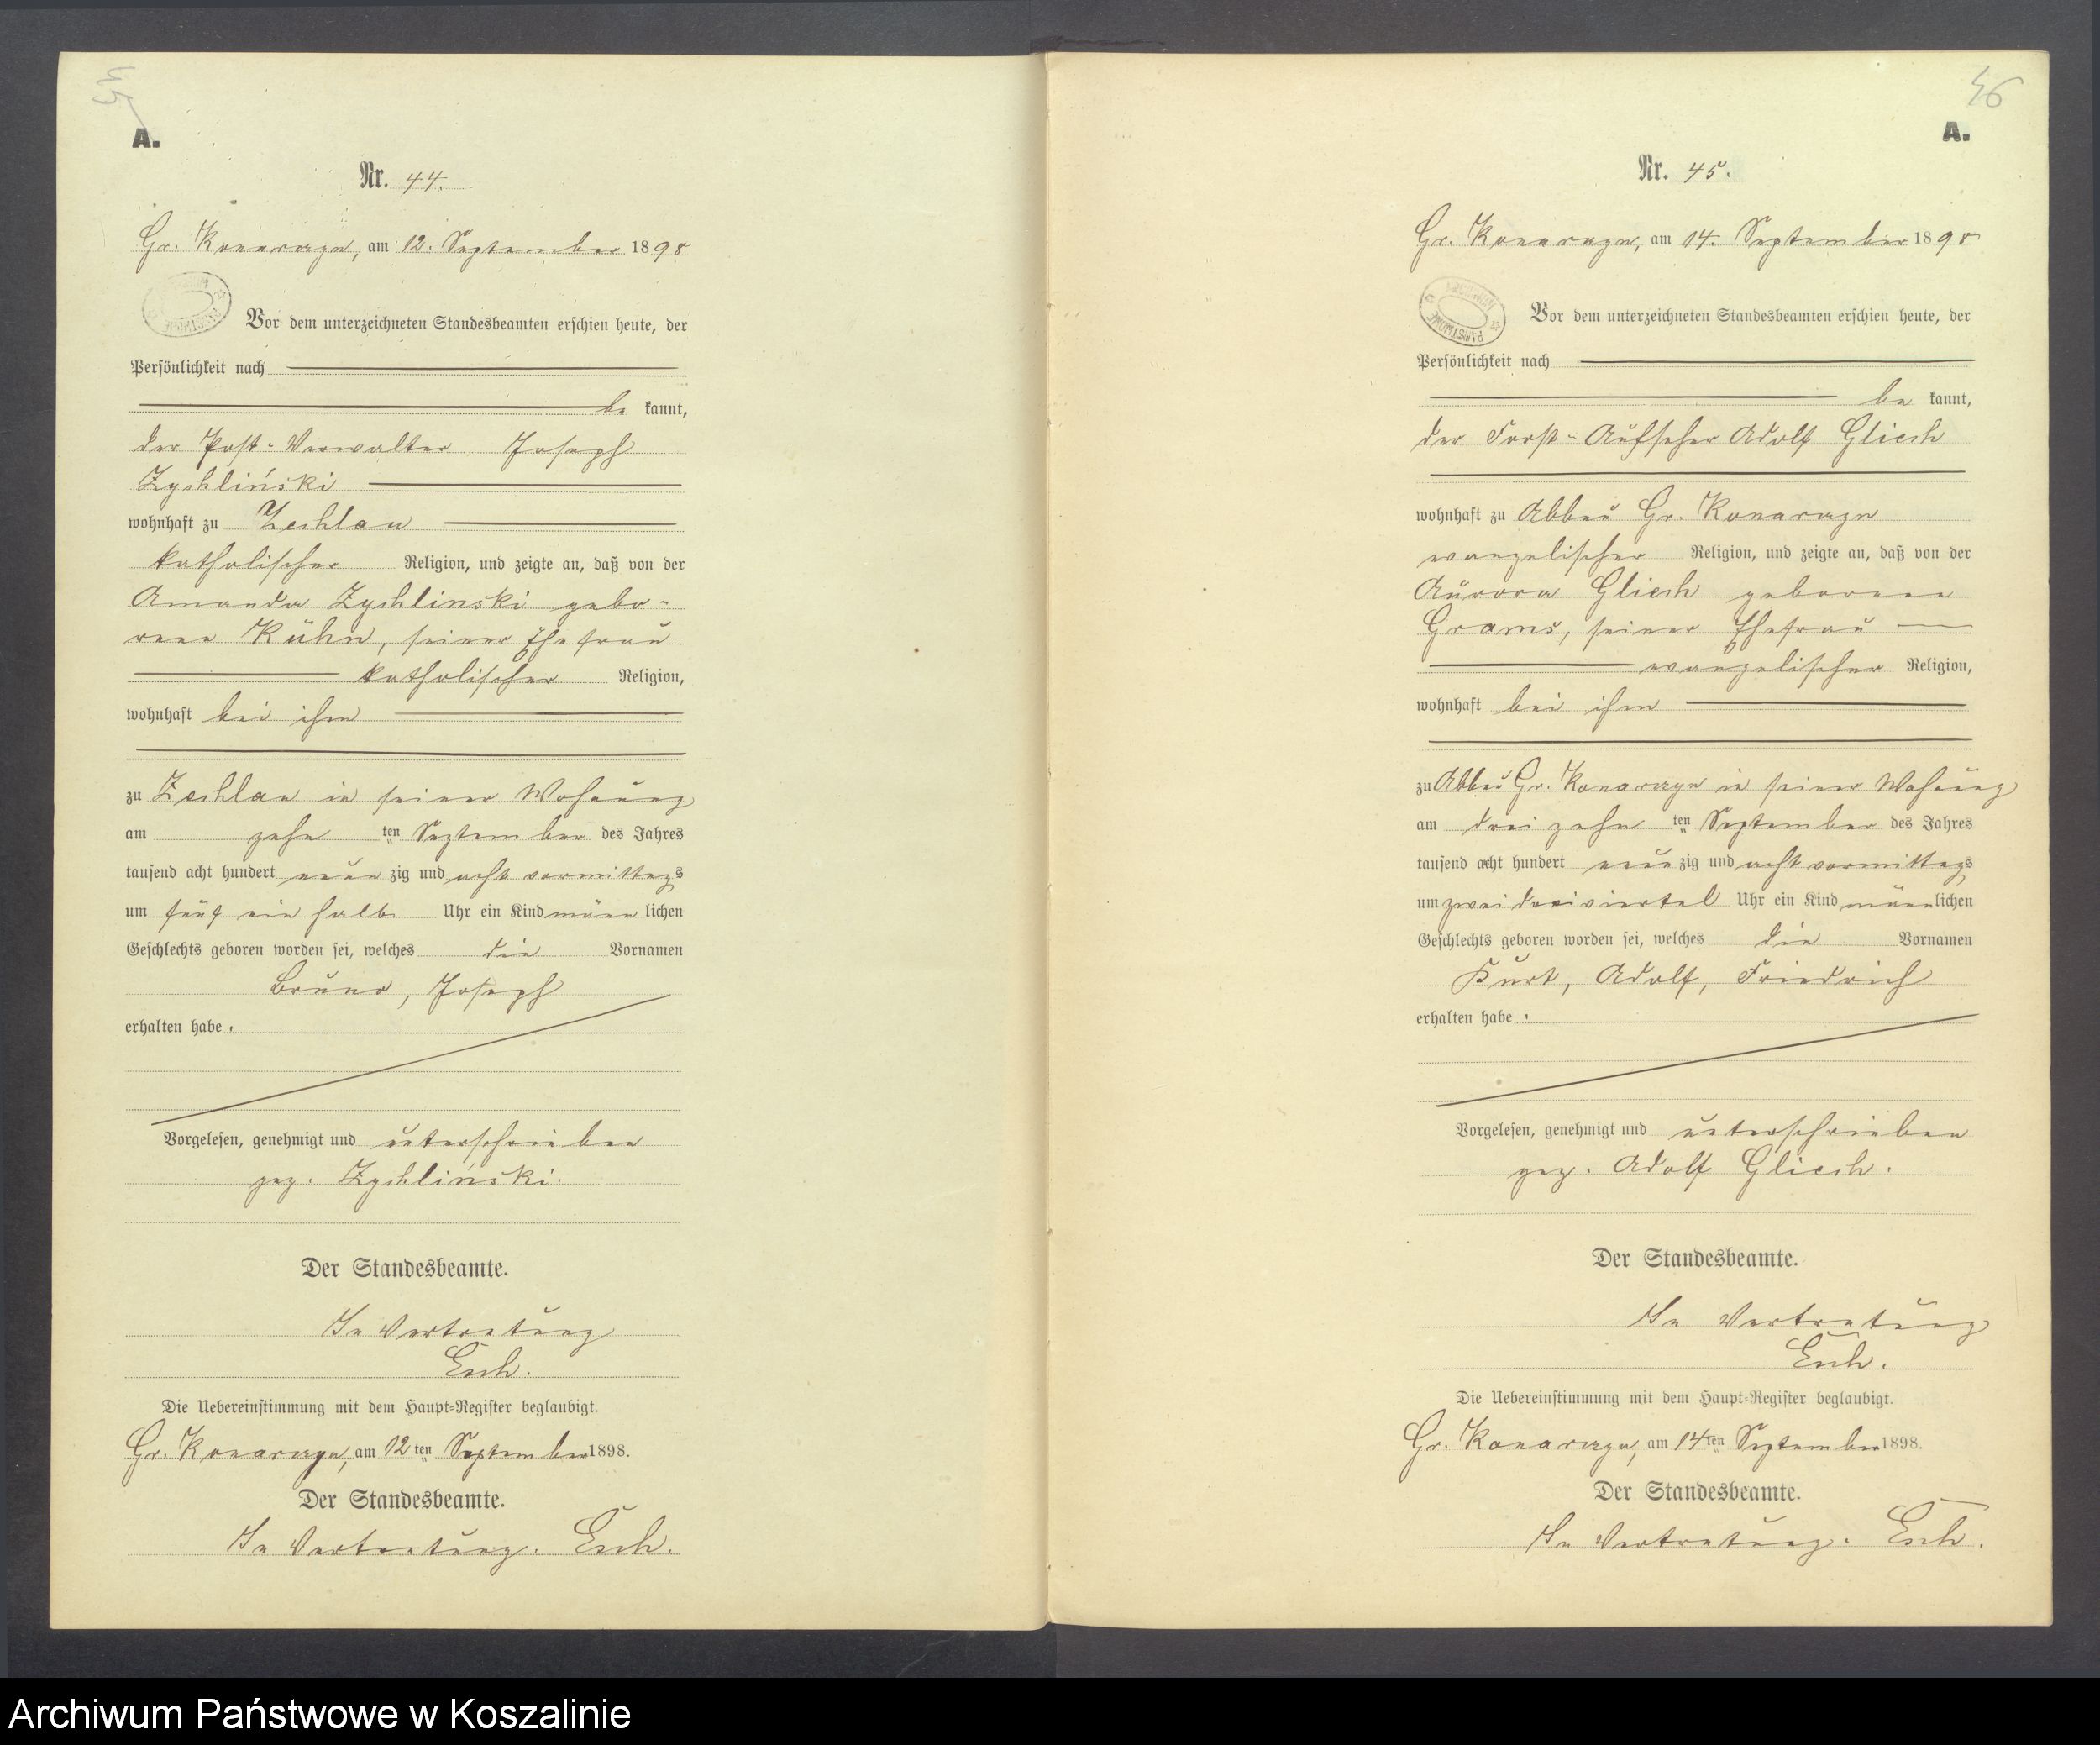 45
A.
Nr. 44.
Gr. Konarczyn, am 12. September 1898
Vor dem unterzeichneten Standesbeamten erschien heute, der
Persönlichkeit nach
be kannt,
der Post-Verwalter Joseph
Zychliński
wohnhaft zu Zechlau
katholischer Religion, und zeigte an, daß von der
Amanda Zychlinski gebo-
rene Kühn, seiner Ehefrau
katholischer Religion,
wohnhaft bei ihm
zu Zechlau in seiner Wohnung
am zehn ten September des Jahres
tausend acht hundert neun zig und acht vormittags
um fünf ein halb Uhr ein Kind männ lichen
Geschlechts geboren worden sei, welches die Vornamen
Bruno, Joseph
erhalten habe.
Vorgelesen, genehmigt und unterschrieben
gez. Zychliński.
Der Standesbeamte.
In Vertretung
Esch.
Die Uebereinstimmung mit dem Haupt-Register beglaubigt.
Gr. Konarczyn, am 12 ten September 1898.
Der Standesbeamte.
In Vertretung. Esch.
46
A.
Nr. 45.
Gr. Konarczyn, am 14. September 1898
Vor dem unterzeichneten Standesbeamten erschien heute, der
Persönlichkeit nach
be kannt,
der Forst-Aufseher Adolf Gliech
wohnhaft zu Abbau Gr. Konarczyn
evangelischer Religion, und zeigte an, daß von der
Aurora Gliech geborene
Grams, seiner Ehefrau
evangelischer Religion,
wohnhaft bei ihm
zu Abbau Gr. Konarczyn in seiner Wohnung
am drei zehn ten September des Jahres
tausend acht hundert neun zig und acht vormittags
um zwei dreiviertel Uhr ein Kind männ lichen
Geschlechts geboren worden sei, welches die Vornamen
Kurt, Adolf, Friedrich
erhalten habe.
Vorgelesen, genehmigt und unterschrieben
gez. Adolf Gliech.
Der Standesbeamte.
In Vertretung
Esch.
Die Uebereinstimmung mit dem Haupt-Register beglaubigt.
Gr. Konarczyn, am 14 ten September 1898.
Der Standesbeamte.
In Vertretung. Esch.
Archiwum Państwowe w Koszalinie